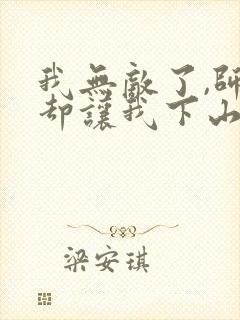 我無敵了,師
却讓我下山
梁安琪